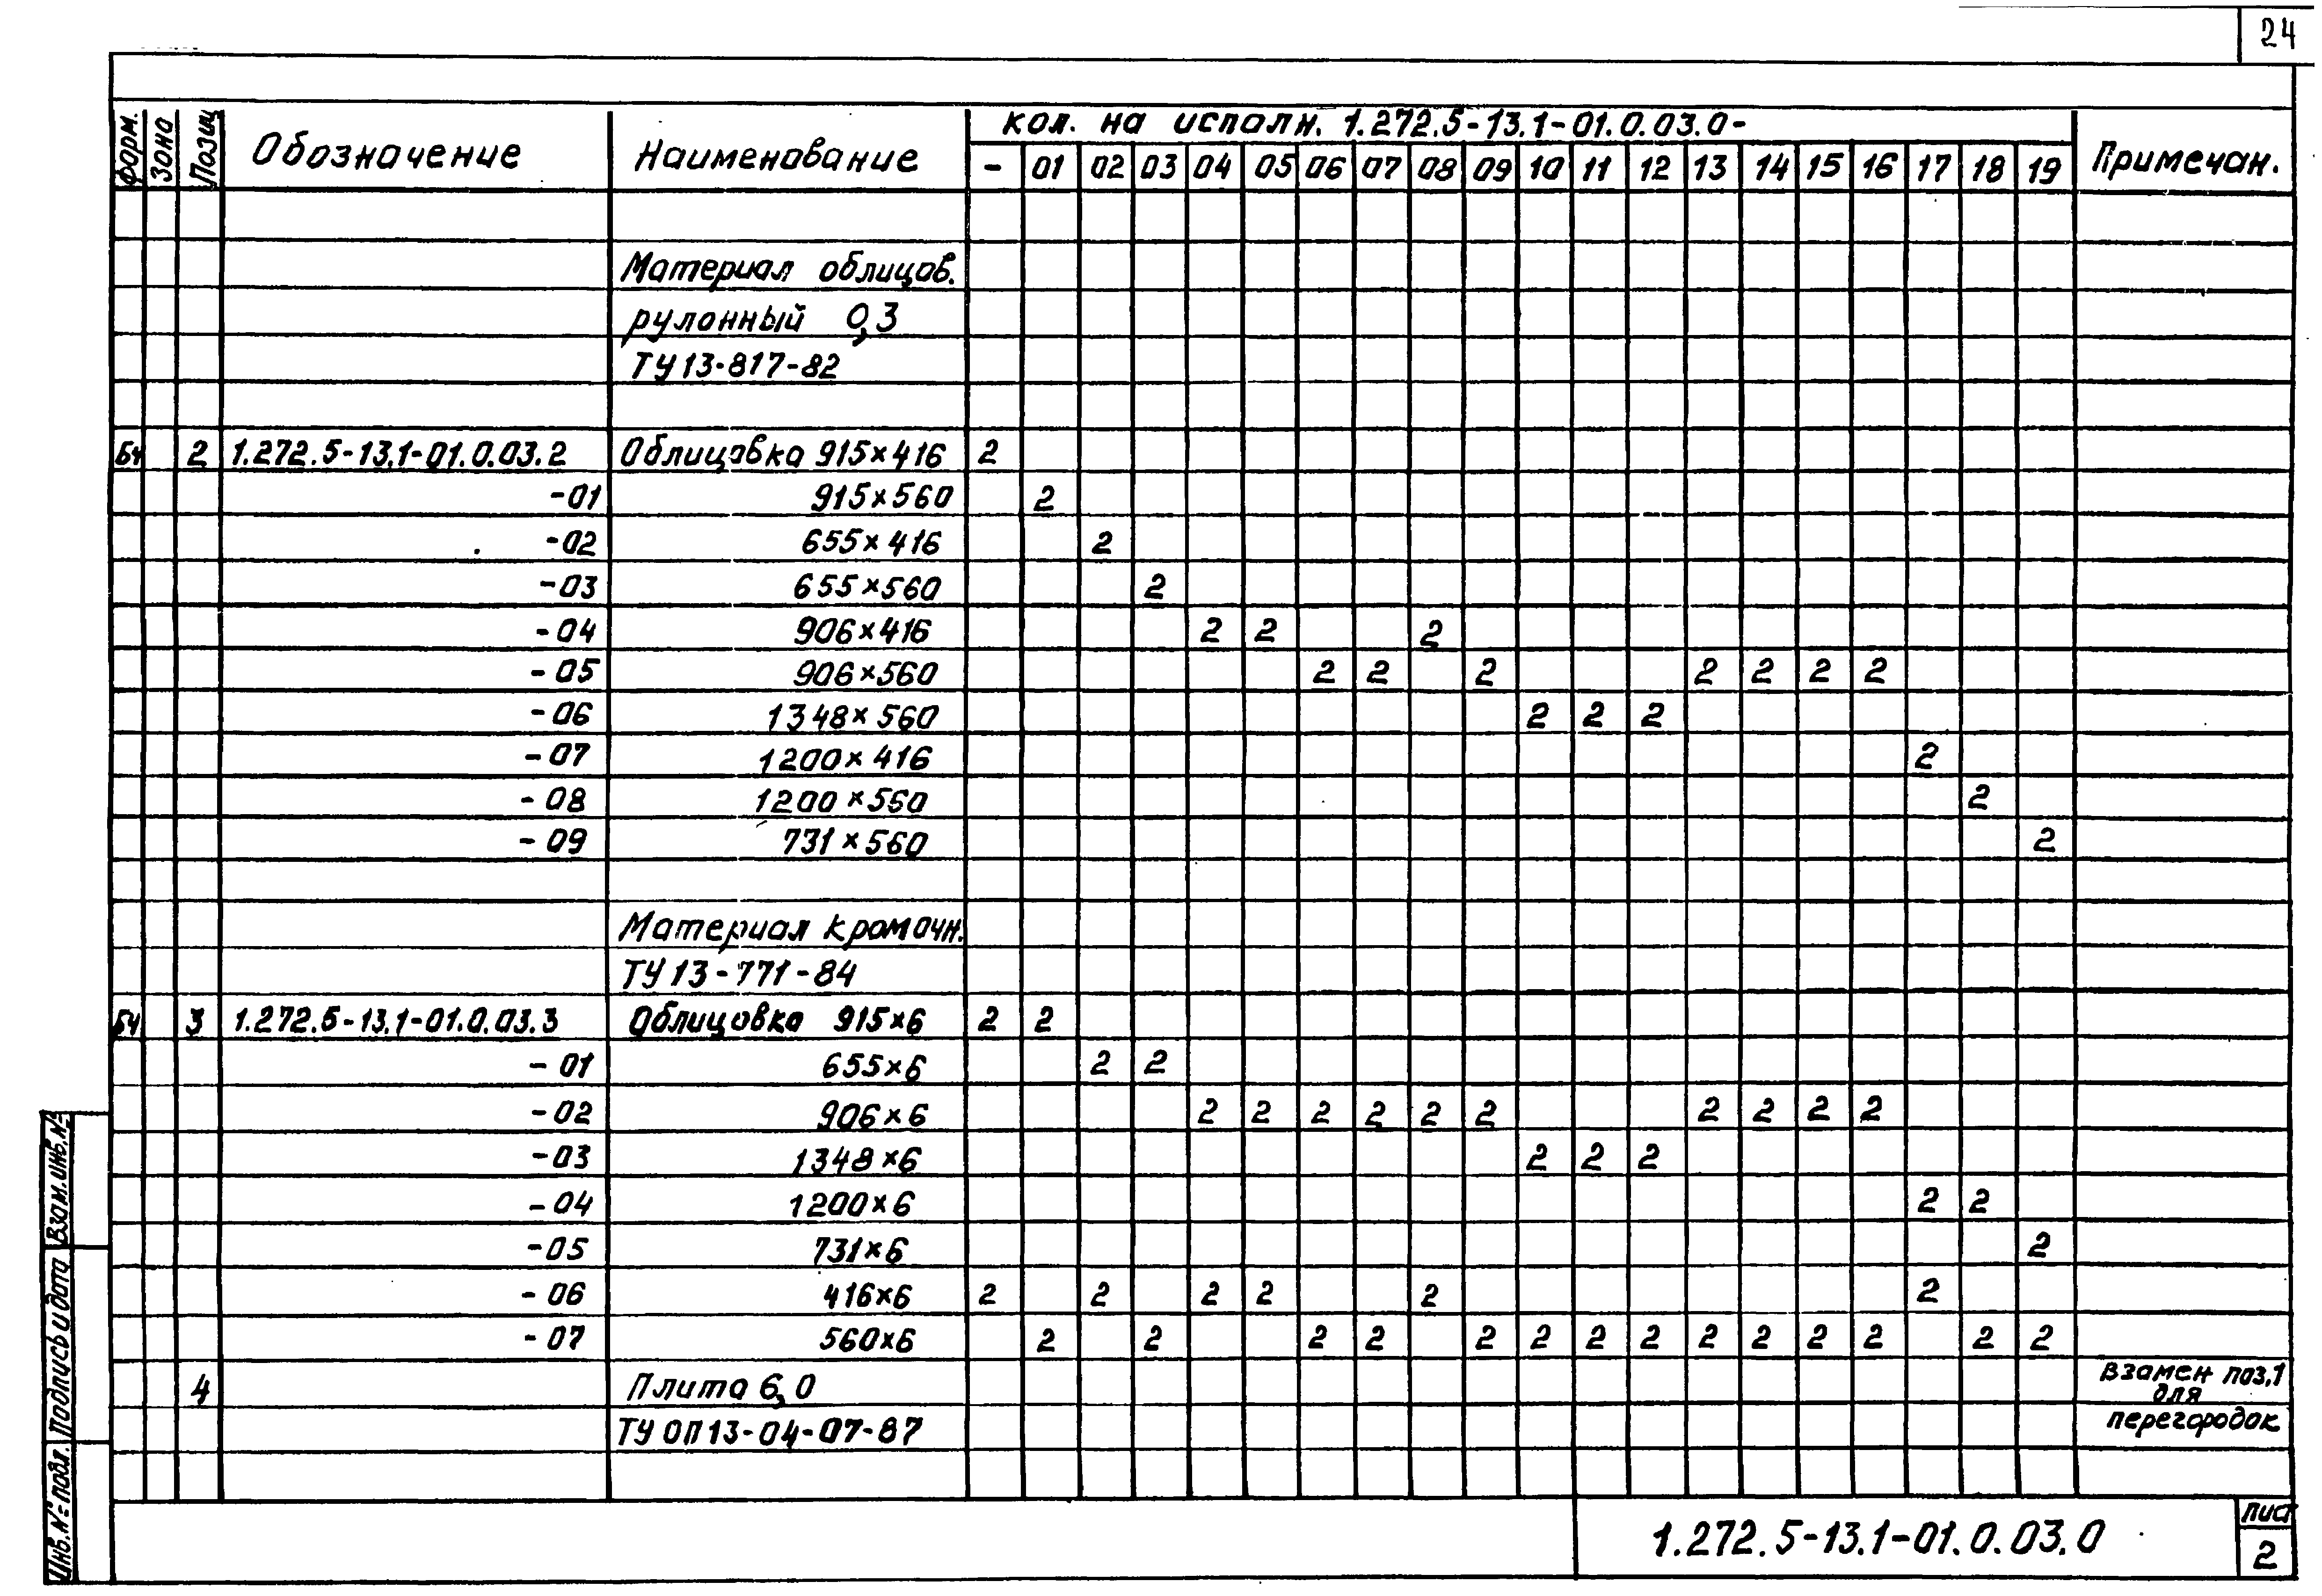 24
Форм.
Зона
Позиц
Обозначение
Наименование
кол. на исполн. 1.272.5-13.1-01.0.03.0-
- 01 02 03 04 05 06 07 08 09 10 11 12 13 14 15 16 17 18 19
Примечан.
Материал облицов.
рулонный 0,3
ТУ 13-817-82
БЧ 2 1.272.5-13.1-01.0.03.2 Облицовка 915×416 2
-01 915×560 2
-02 655×416 2
-03 655×560 2
-04 906×416 2 2 2
-05 906×560 2 2 2 2 2 2 2
-06 1348×560 2 2 2
-07 1200×416 2
-08 1200×560 2
-09 731×560 2
Материал кромочн.
ТУ 13-771-84
БЧ 3 1.272.5-13.1-01.0.03.3 Облицовка 915×6 2 2
-01 655×6 2 2
-02 906×6 2 2 2 2 2 2 2 2 2 2
-03 1348×6 2 2 2
-04 1200×6 2 2
-05 731×6 2
-06 416×6 2 2 2 2 2 2
-07 560×6 2 2 2 2 2 2 2 2 2 2 2 2 2 2
4 Плита 6,0 взамен поз.1
для
ТУ ОП 13-04-07-87 перегородок
Взам.инв.№
Подпись и дата
Инв.№ подл.
1.272.5-13.1-01.0.03.0
Лист
2